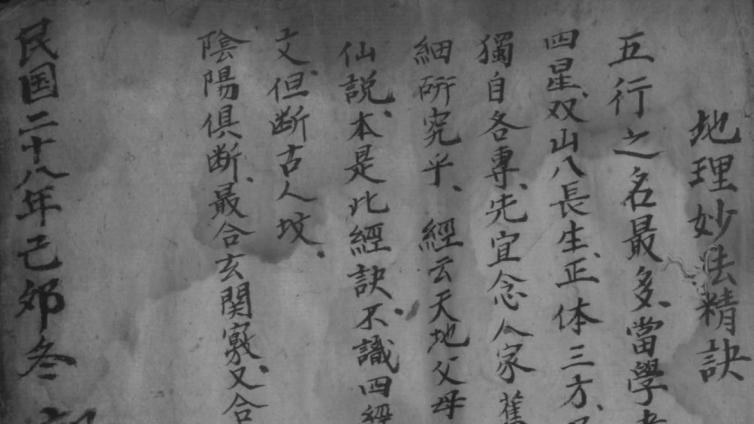 地理妙法精訣
五行之名最多、當學
四星、双山八長生、正体三方、
獨自各專、先宜念人家舊
細研究乎、經云天地父母
仙説、本是此經訣、不識四經
文、但断古人坟、
陰陽俱断、最合玄関竅、又合
民国二十八年己卯冬